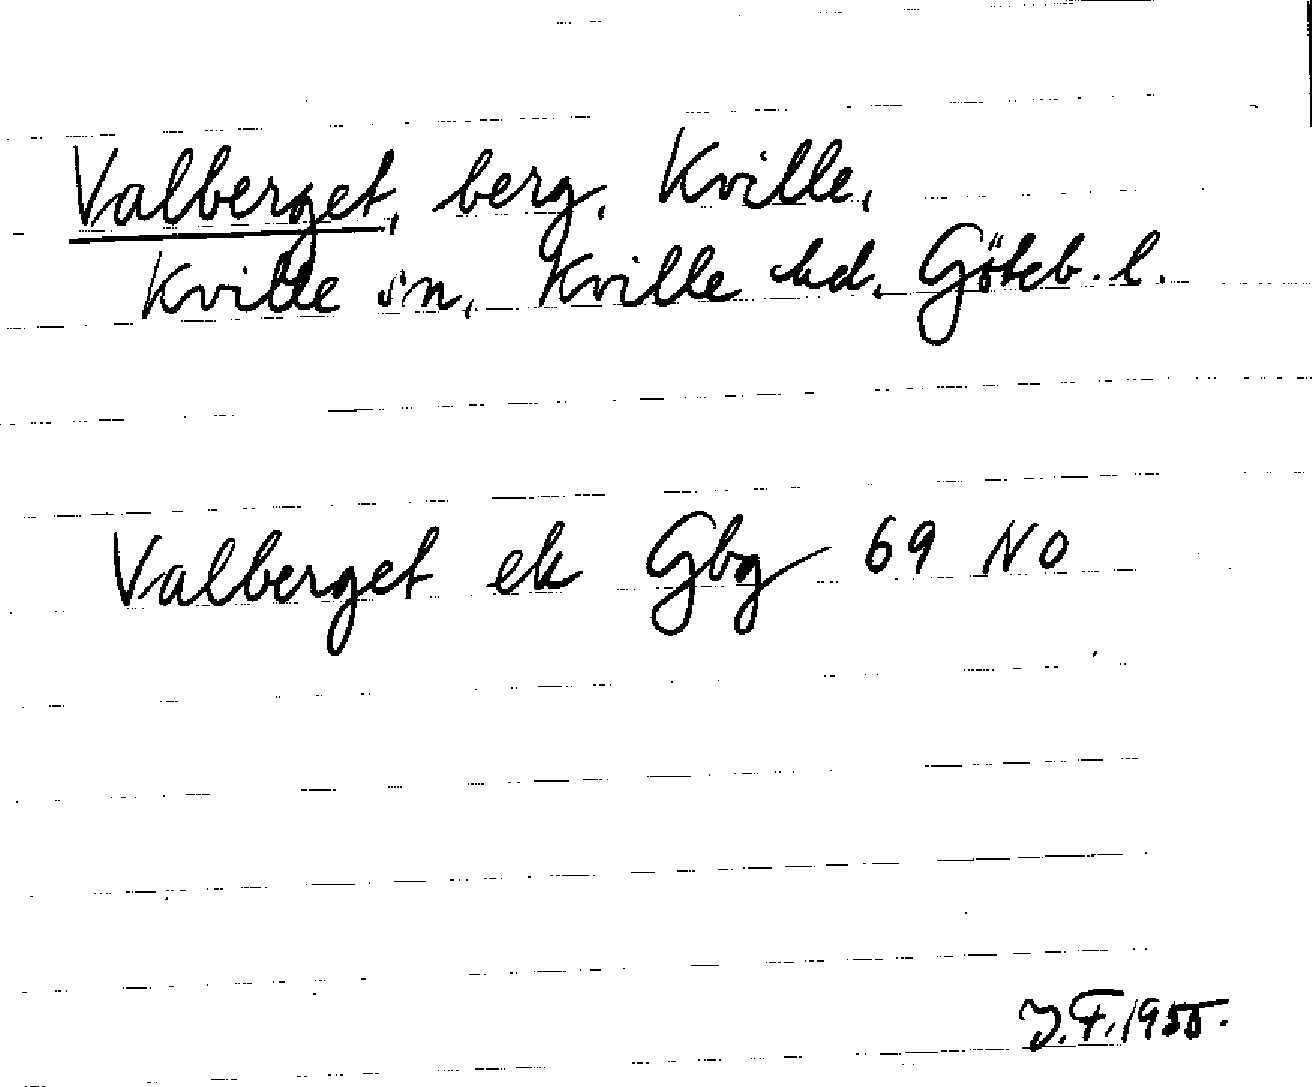 Valberget, berg, Kville,
Kville sn, Kville hd, Göteb. l.
Valberget ek Gbg 69 NO
J.F. 1955.